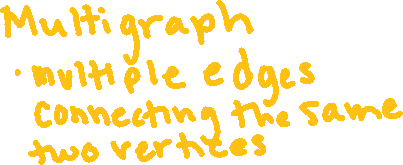 Multigraph
· multiple edges
connecting the same
two vertices